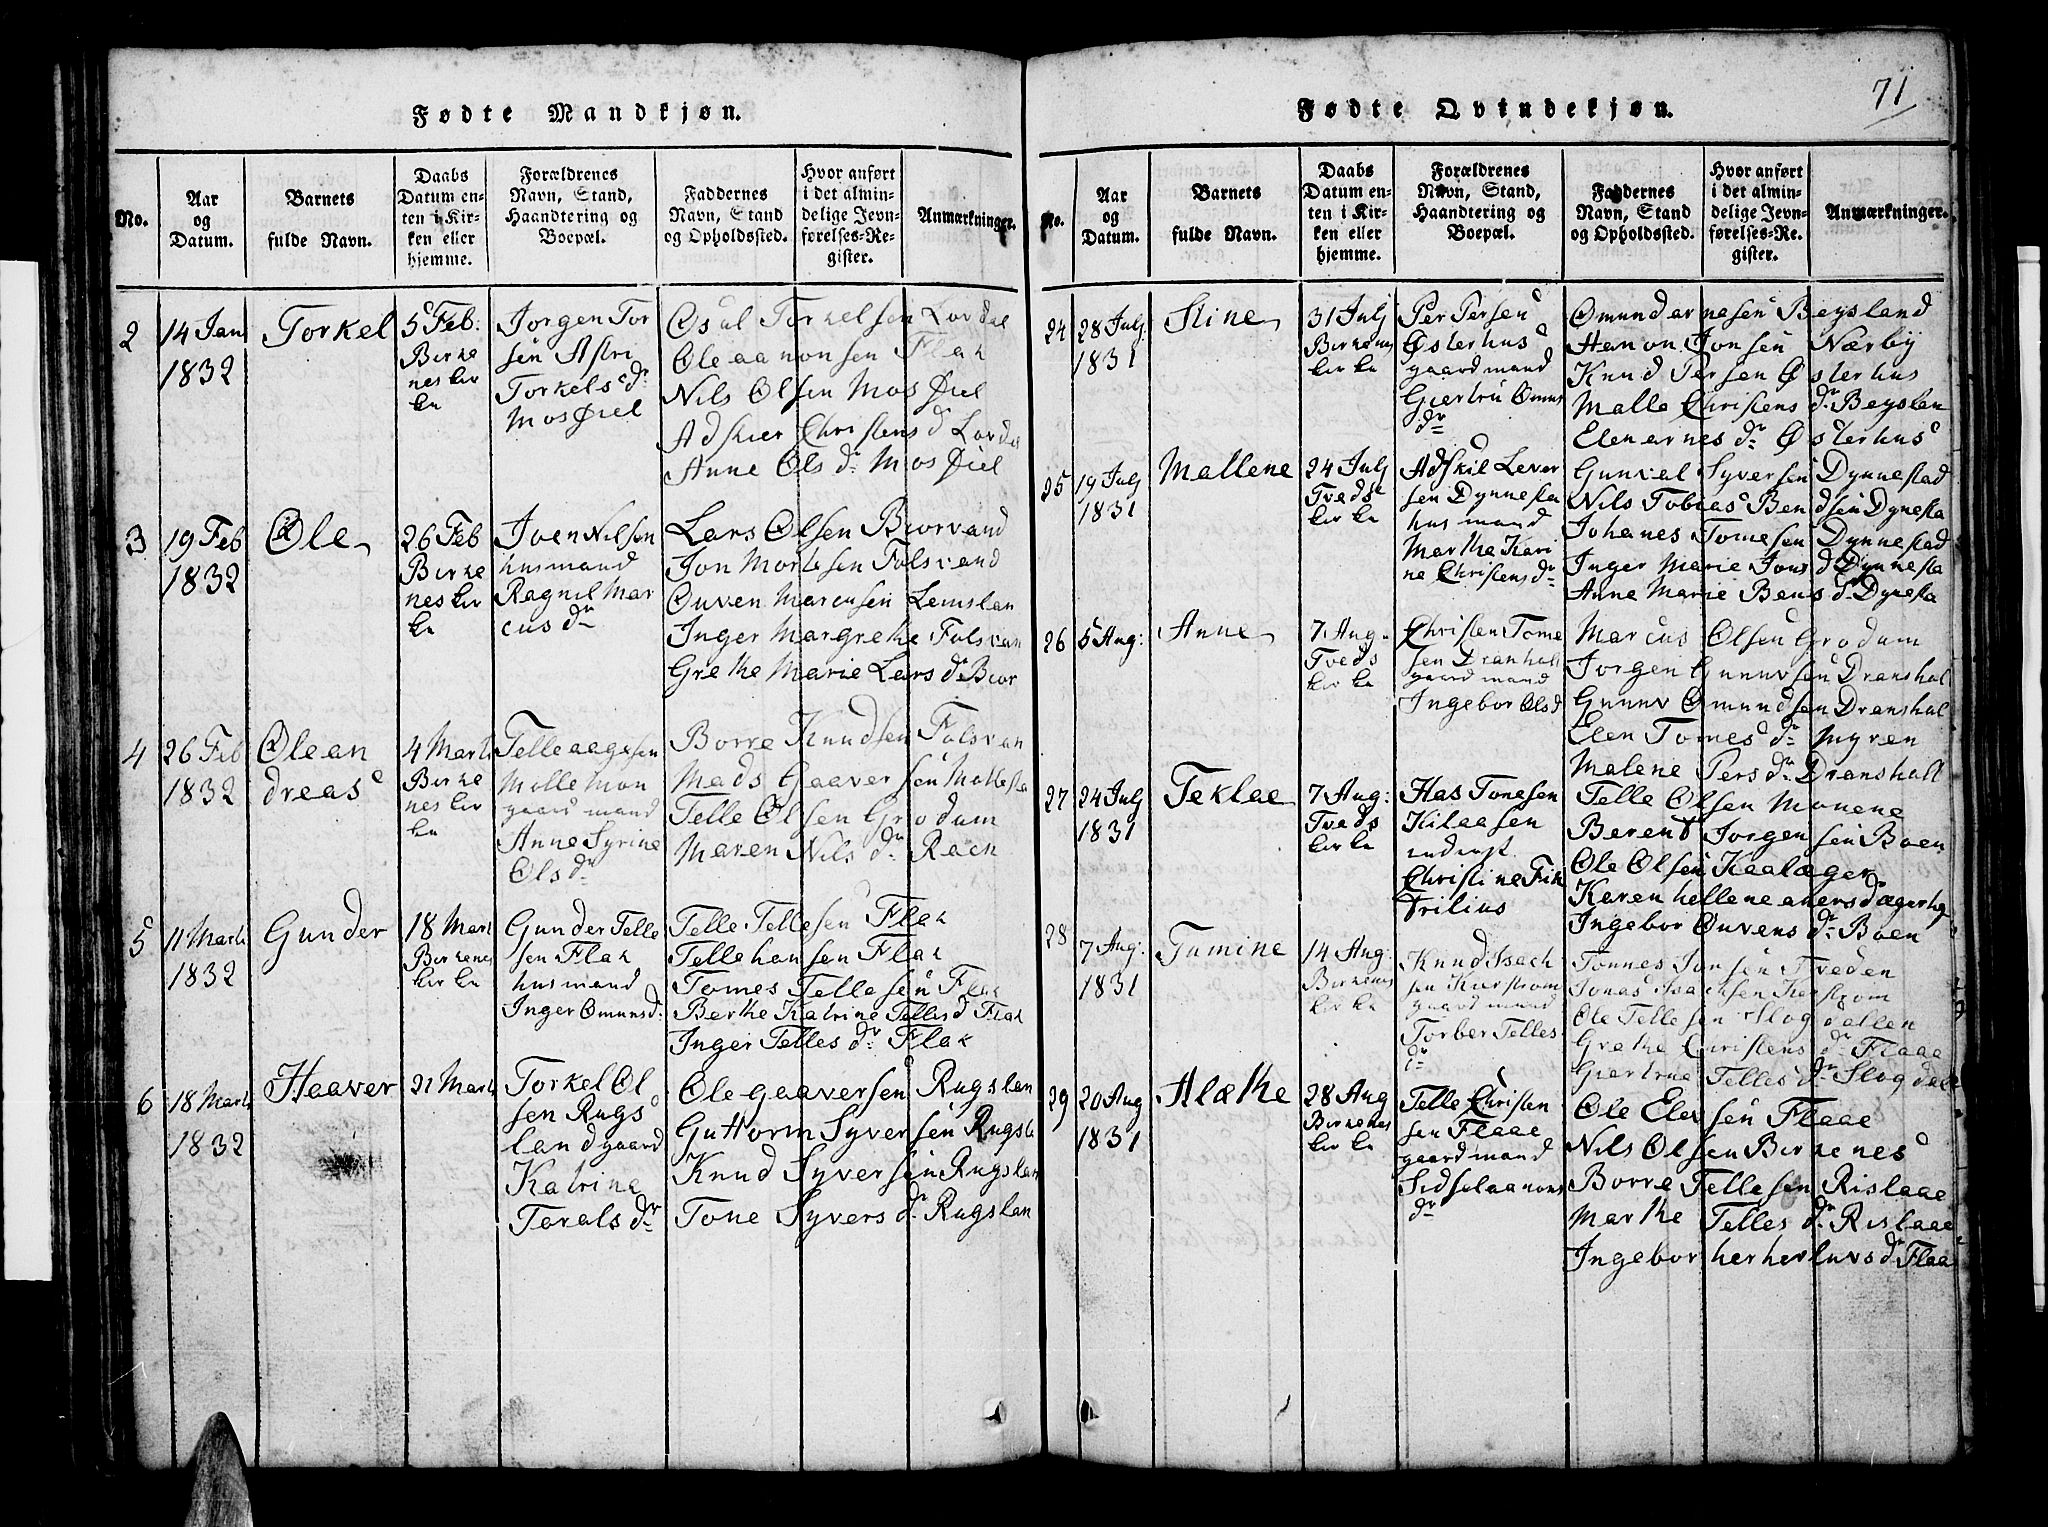 Fødte Mandkjøn.
No.
Aar
og
Datum.
Barnets
fulde Navn.
Daabs
Datum en-
ten i Kir-
ken eller
hjemme.
Forældrenes
Navn, Stand,
Haandtering og
Boepæl.
Faddernes
Navn, Stand
og Opholdssted.
Hvor anført
i det almin-
delige Jevn-
førelses-Re-
gister.
Anmærkninger.
2
14 Jan
1832
Torkel
5 Feb:
Birke
nes kir
ke
Jorgen Tor
sen Astri
Torkels dr
Mosøiel
Osul Torkelsen Lordal
Ole aanonsen Flak
Nils Olsen Mosøiel
Adskier Christens d Lordal
Anne Ols dr Mosøiel
3
19 Feb
1832
Ole
26 Feb
Birke
nes kir
ke
Jven Nilsen
husmand
Ragnil Mar
cus dr
Lars Olsen Biorvand
Jon Mortesen Folsvand
Ouven Marcusen Lemslan
Inger Margrethe Folsvan
Grethe Marie Lars dr Bior
4
26 Feb
1832
Ole an
dreas
4 Marts
Birke
nes kir
ke
Telle aagesen
Mollemon
gaard mand
Anne Syrine
Ols dr
Borre Knudsen Folsvan
Mads Gaaversen Mollesta
Telle Olsen Grodum
Maren Nils dr Rack
5
11 Marts
1832
Gunder
18 Mart
Birkenes
kir ke
Gunder Telle
sen Flak
husmand
Inger Omunsd:
Telle Tellesen Flak
Telle hansen Flak
Tomes Tellesen Flak
Berthe Katrine Telles d Flak
Inger Telles dr Flak
6
18 Marts
1832
Haaver
21 Marts
Torkel Ol
sen Rugs
land gaard
Katrine
Torals dr
Ole gaaversen Rugslan
Guttorm Syversen Rugsla
Knud Syversen Rugslan
Tone Syvers dr Rugslan
71
Fødte Qvindekjøn.
No.
Aar
og
Datum.
Barnets
fulde Navn.
Daabs
Datum en-
ten i Kir-
ken eller
hjemme.
Forældrenes
Navn, Stand,
Haandtering og
Boepæl.
Faddernes
Navn, Stand
og Opholdssted.
Hvor anført
i det almin-
delige Jevn-
førelses-Re-
gister.
Anmærkninger.
24
28 July
1831
Stine
31 July
Birkenes
kir ke
Per Persen
Østerhus
gaard mand
Giertru Omuns
dr
Omund arnesen Beysland
Hanon Jonsen Nærby
Knud Persen Østerhus
Malle Christens dr Beyslan
Elen ernes dr Østerhus
25
19 July
1831
Mallene
24 July
Tveds
kir ke
Adskil Lever
sen Dynnesta
hus mand
Marthe Kari
ne Christens dr
Gunvel Syversen Dynnestad
Nils Tobias Bendsen Dynesta
Johanes Tomesen Dynnestad
Inger Marie Jons d Dynnesta
Anne Marie Bens d Dynesta
26
5 Aug:
Anne
7 Aug.
Tveds
kir ke
Christen Tome
sen Dranholt
gaard mand
Ingebor Ols d
Marcus Olsen Grodum
Jorgen Gunuvsen Dranshol
Gunuv Omundsen Dranshol
Elen Tomes dr Myren
Malene Pers dr Dransholt
27
24 July
1831
Teklae
7 Aug:
Tveds
kir ke
Has Tonesen
Kilaasen
inderst
Christine Fik
trilius
Telle Olsen Monene
Berent Jorgensen Boen
Ole Olsen Kaalæger
Karen hellene aners d ægerhe
Ingebor Ouvens dr Boen
28
7 Aug:
1831
Tumine
14 Aug:
Birkenes
kir ke
Knud Isach
sen Kierstrom
gaard mand
Torber Telles
dr
Tonnes Jonsen Tveden
Jonas Isachsen Kierstrom
Ole Tellesen Slogdallen
Grethe Christens dr Flaae
Giertrue Telles dr Slogdal
29
20 Aug
1831
Alæthe
28 Aug
Birkenes
kir ke
Telle Christen
sen Flaae
gaard mand
Sidsel aanons
dr
Ole Elevsen Flaae
Nils Olsen Birkenes
Borre Tellesen Rislaae
Marthe Telles dr Rislaae
Ingebor herherluvs dr Flaa